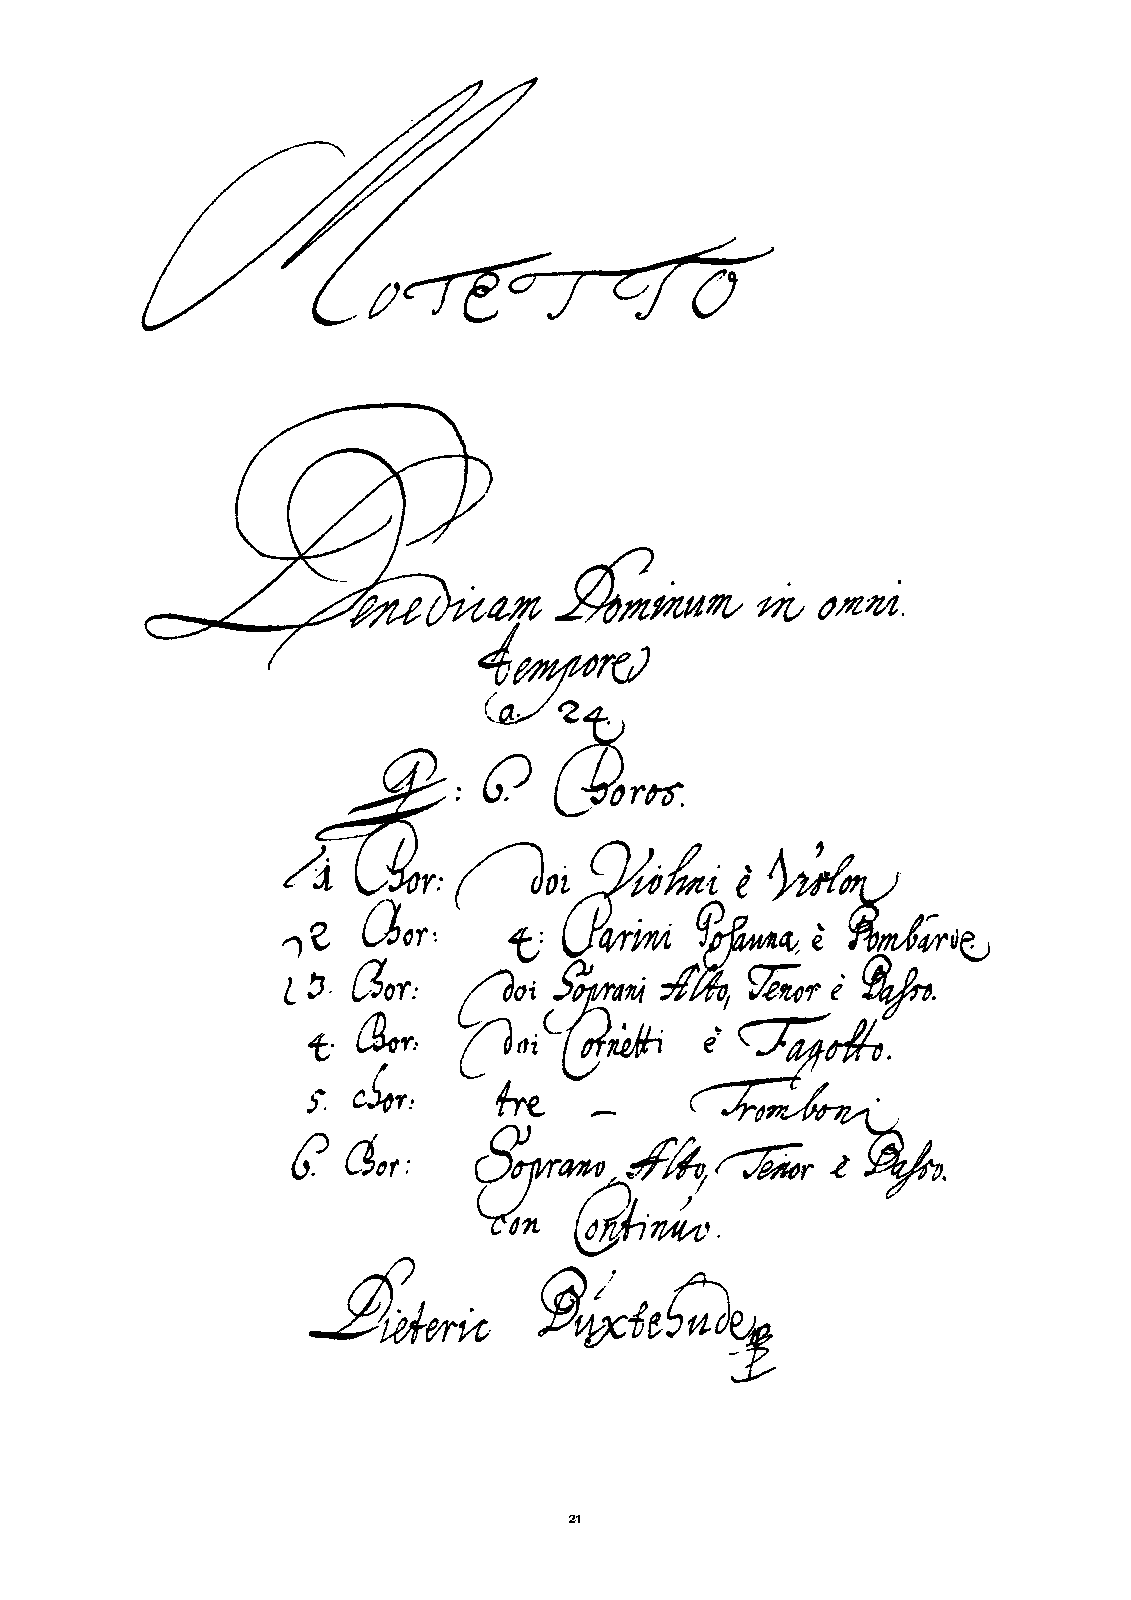 Motetto
Benedicam Dominum in omni.
tempore
a. 24.
: 6. Choros.
1 Chor: doi Violini è Violon
2 Chor: 4: Clarini Posauna, è Bombarde.
3. Chor: doi Soprani Alto, Tenor è Basso.
4. Chor: doi Cornetti è Fagotto.
5. chor: tre – Tromboni
6. Chor: Soprano, Alto, Tenor è Basso.
con Continúo.
Dieteric Búxtehude
21